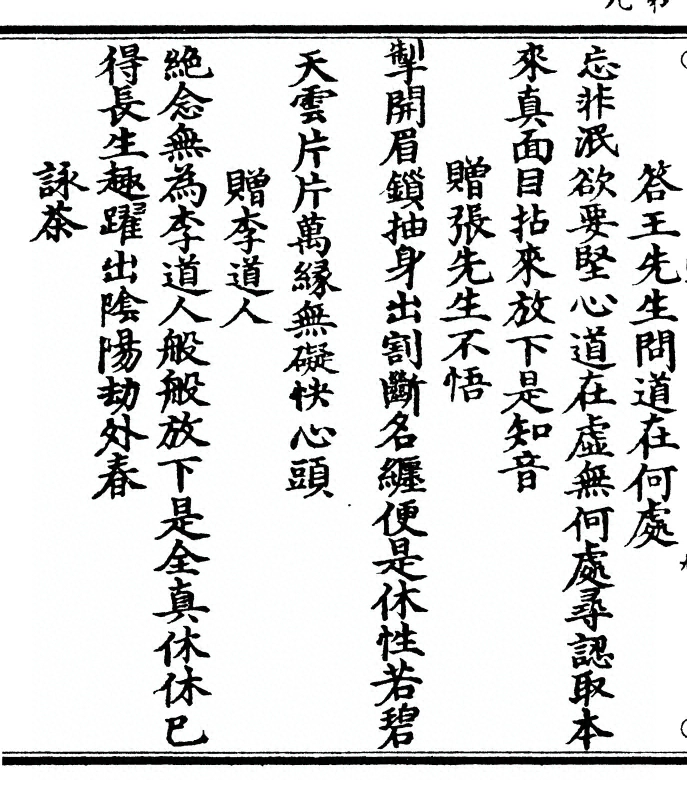 答王先生問道在何處
忘非泯欲要堅心道在虛無何處尋認取本
來真面目拈來放下是知音
贈張先生不悟
掣開眉鎖抽身出割斷名纏便是休性若碧
天雲片片萬緣無礙快心頭
贈李道人
絕念無為李道人般般放下是全真休休已
得長生趣躍出陰陽劫外春
詠茶